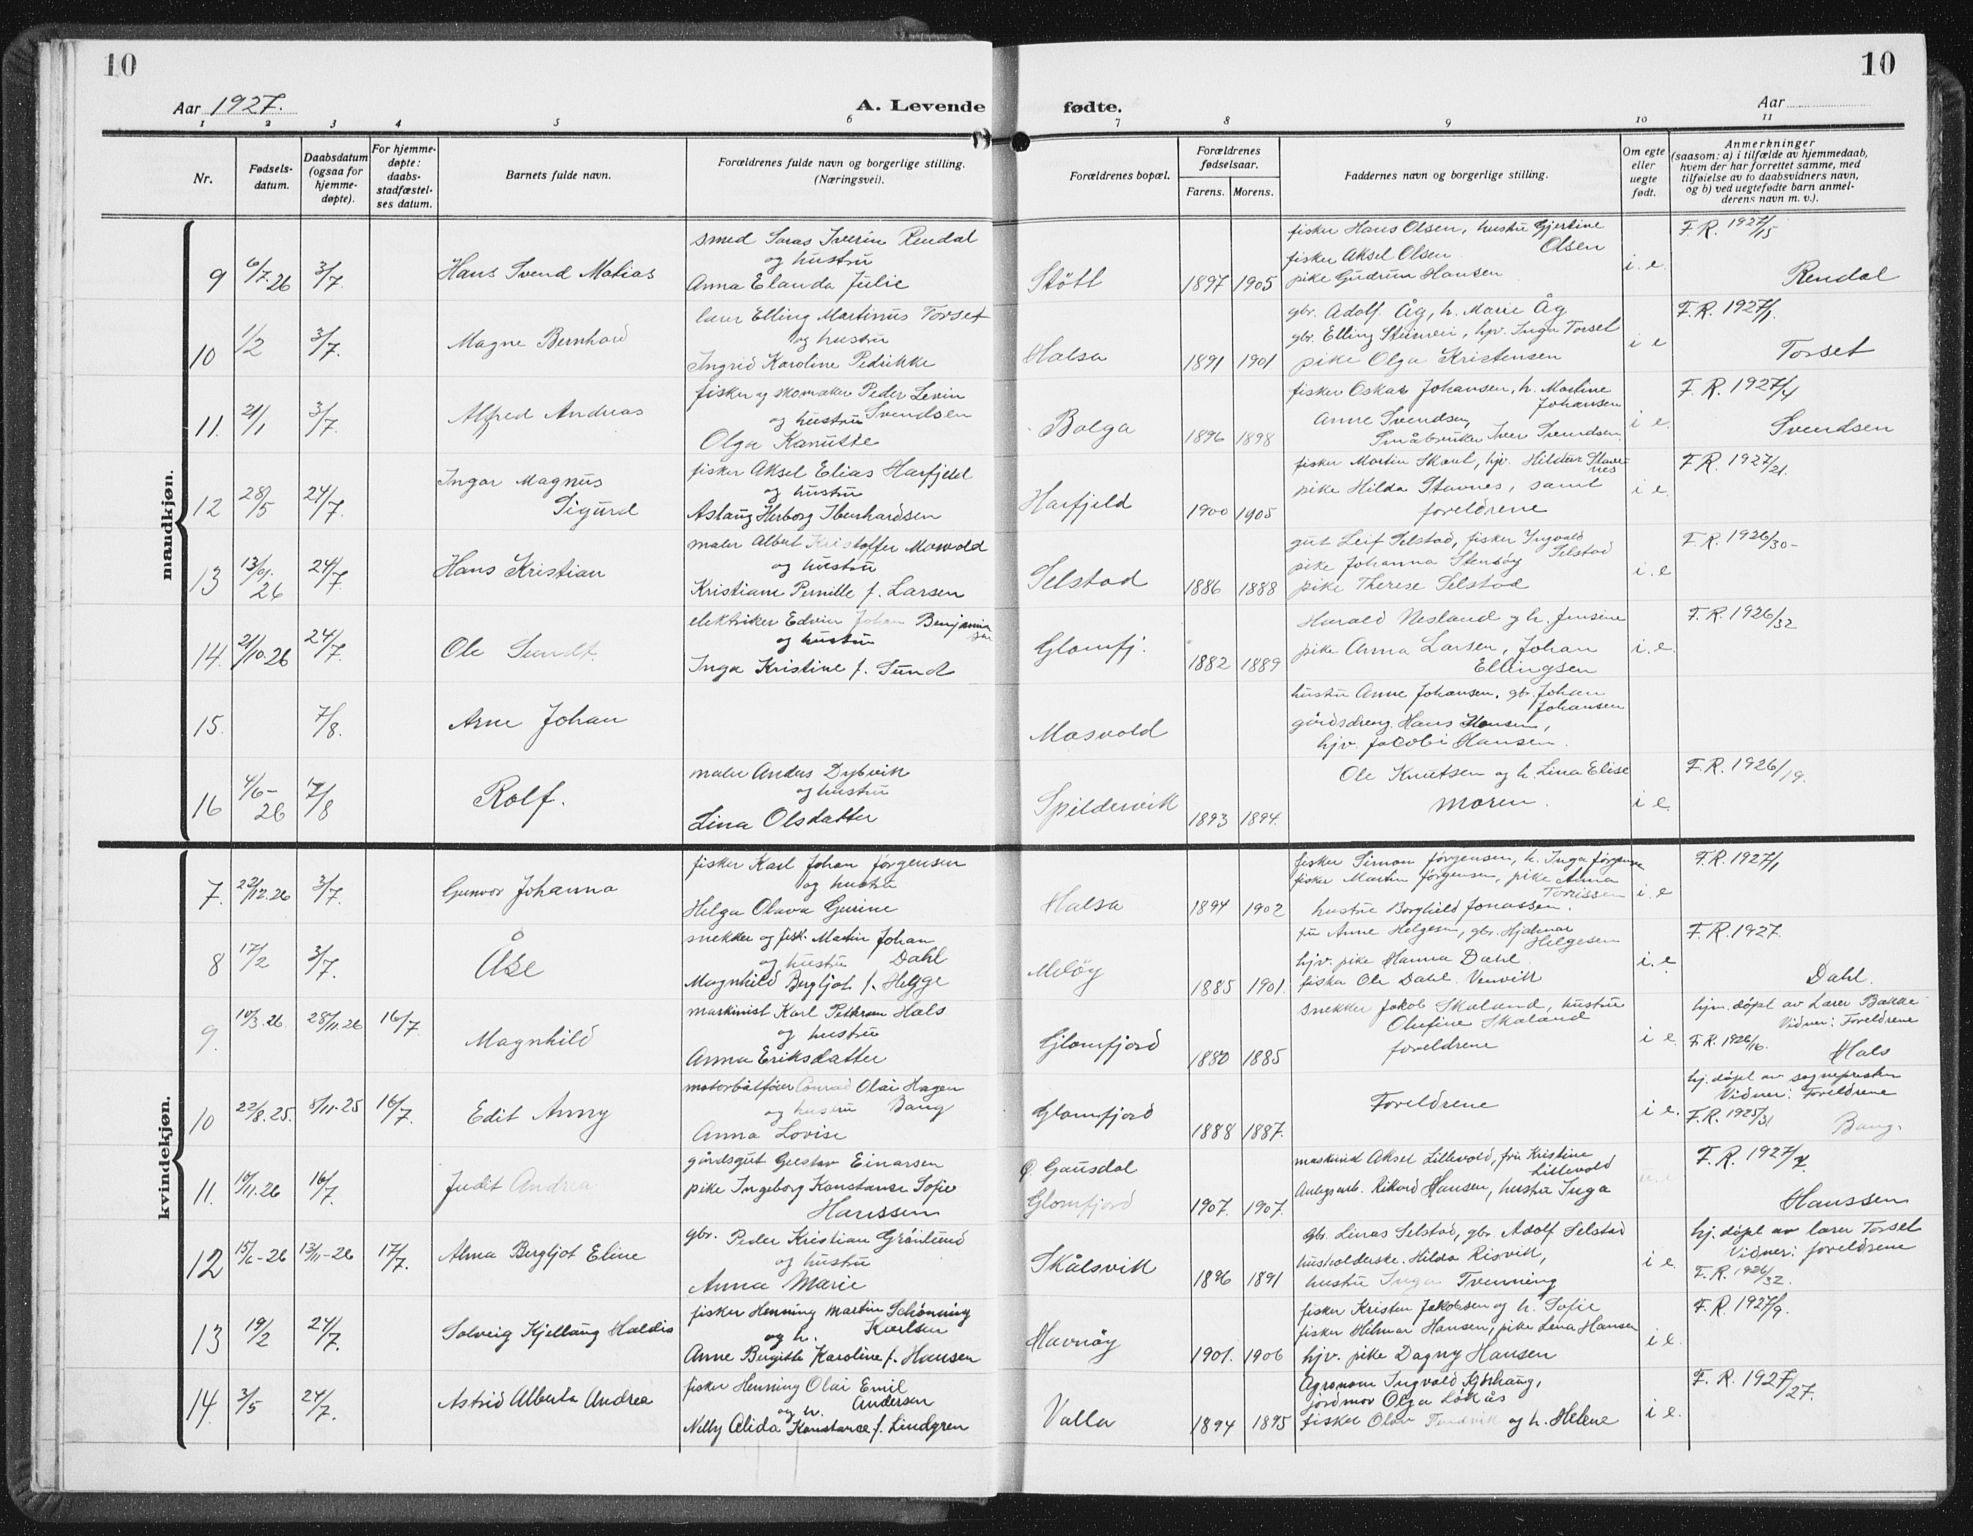 10
10
Aar 1927.
A. Levende fødte.
Aar
1 2 3 4 5 6 7 8 9 10 11
Nr.
Fødsels-
datum.
Daabsdatum
(ogsaa for
hjemme-
døpte).
For hjemme-
døpte:
daabs-
stadfæstel-
ses datum.
Barnets fulde navn.
Forældrenes fulde navn og borgerlige stilling.
(Næringsvei).
Forældrenes bopæl.
Forældrenes
fødselsaar.
Farens. Morens.
Faddernes navn og borgerlige stilling.
Om egte
eller
uegte
født.
Anmerkninger
(saasom: a) i tilfælde av hjemmedaab,
hvem der har forrettet samme, med
tilføielse av to daabsvidners navn,
og b) ved uegtefødte barn anmel-
derens navn m. v.).
mandkjøn.
9 6/7-26 3/7. Hans Svend Matias
smed Iverin Rendal
og hustru
Anna Elanda Julie
Støtt 1897 1905
fisker Hans Olsen, hustru Gjertine
Olsen
fisker Aksel Olsen
pike Gudrun Hansen
i. e.
F. R. 1927/15
Rendal
10 1/2 3/7. Magne Bernhard
lærer Elling Martinus Torset
og hustru
Ingrid Karoline Petrikke
Halsa 1891 1901
gbr. Adolf Åg, h. Marie Åg
gbr. Elling Steinvei, hjv. Inga Torset
pike Olga Kristensen
i e
F. R. 1927/1.
Torset
11. 21/1 3/7. Alfred Andreas
fisker og skomaker Peder Levin
og hustru Svendsen
Olga Kanutte
Bolga 1896 1898
fisker Oskar Johansen, h. Martine
Johansen
Anne Svendsen,
Småbruker Iver Svendsen.
i e.
F. R. 1927/4
Svendsen
12 28/5 24/7. Ingar Magnus
Sigurd
fisker Aksel Elias Harfjeld
og hustru
Aslaug Herborg Iberhardsen
Harfjeld 1900 1905
fisker Martin Skant, hjv. Hildur
pike Hilda Stavnes, samt
foreldrene
i e.
F. R. 1927/21.
13 13/9.26 24/7. Hans Kristian
maler Albert Kristoffer Mosvold
og hustru
Kristiane Pernille f. Larsen
Selstad 1886 1888
gut Leif Selstad, fisker Ingvald
Selstad
pike Johanna Stensøy
pike Therese Selstad
i. e
F. R. 1926/30-
14. 21/10.26 24/7. Ole Sundt.
elektriker Edvin Johan Benjamin
og hustru
Inga Kristine f. Sund
Glomfj. 1882 1889
Harald Nesland og h. Jensine
pike Anna Larsen, Johan
Ellingsen
i. e.
F. R. 1926/32
15. 7/8. Arne Johan
Mosvold
hustru Anne Johansen, gbr. Johan
Johansen
gårdsdreng Hans Hansen,
hjv. Jakobi Hansen.
16 4/6-26 7/8 Rolf.
maler Anders Dybvik
og hustru
Lina Olsdatter
Spildervik 1893 1894.
Ole Knutsen og h. Lina Elise
moren.
i e.
F. R. 1926/19.
kvindekjøn.
7. 22/12.26 3/7. Gunvor Johanna
fisker Karl Johan Jørgensen
og hustru
Helga Olava Gurine
Halsa 1894 1902
fisker Simon Jørgensen, h. Inga Jørgensen
fisker Martin Jørgensen, pike Anna
Torrissen
hustru Borghild Jonassen.
i e
F. R. 1927/1
8 17/2 3/7. Åse
snekker og fisk. Martin Johan
og hustru Dahl
Magnhild Bergljot f. Hegge
Meløy 1885 1901.
fru Anne Helgesen, gbr. Hjalmar
Helgesen
hjv. pike Hanna Dahl
fisker Ole Dahl Venvik
i. e.
F. R. 1927.
Dahl.
9. 10/3.26 28/11.26 16/7 Magnhild
maskinist Karl Petterson Hals
og hustru
Anna Eriksdatter
Glomfjord 1880 1885
snekker Jakob Skaland, hustru
Olufine Skaland
foreldrene
i e.
hjm. døpt av Lærer Bakke
Vidner: Foreldrene
F. R. 1926/16.
Hals
10 22/8.25. 8/11.25 16/7. Edit Anny
motorbåtfører Conrad Olai Hagen
og hustru Bang
Anna Lovise
Glomfjord 1888 1887.
Foreldrene
i e.
hj. døpt av sogneprest
Vidner: Foreldrene
F. R. 1925/31
Bang.
11. 10/11.26 16/7. Judit Andrea
gårdsgut Gustav Einarsen
pike Ingeborg Konstanse Sofie
Hanssen
Ø Gausdal
Glomfjord 1907. 1907.
maskinist Aksel Lillevold, fru Kristine
Lillevold
Anlegsarb. Rikard Hansen, hustru Inga
u. e
F. R. 1927/7.
Hanssen
12 15/6-26 13/11-26 17/7. Alma Bergljot Eline
gbr. Peder Kristian Grønlund
og hustru
Anna Marie
Skålsvik 1896 1891
gbr. Linas Selstad, gbr. Adolf Selstad
husholderske. Hilda Risvik,
hustru Inga Tvenning
i e.
hj. døpt av lærer Torset
Vidner: foreldrene
F. R. 1926/32.
13 19/2 24/7. Solveig Kjellaug Haldis
fisker Henning Martin Schønning
og h. Karlsen
Anne Bergitte Karoline f. Hansen
Havnøy 1901. 1906
fisker Kristen Jakobsen og h. Sofie
fisker Hilmar Hansen, pike Lina Hansen
hjv. pike Dagny Hansen
i e.
F. R. 1927/9.
14. 3/5 24/7. Astrid Alberta Andrea
fisker Henning Olai Emil
og h. Andersen
Nelly Alida Konstanse f. Lindgren
Valla 1894 1895
Agronom Ingvald Kjørhaug,
jordmor Olga Løkås
fisker Olav og h. Helene
i e.
F. R. 1927/27.